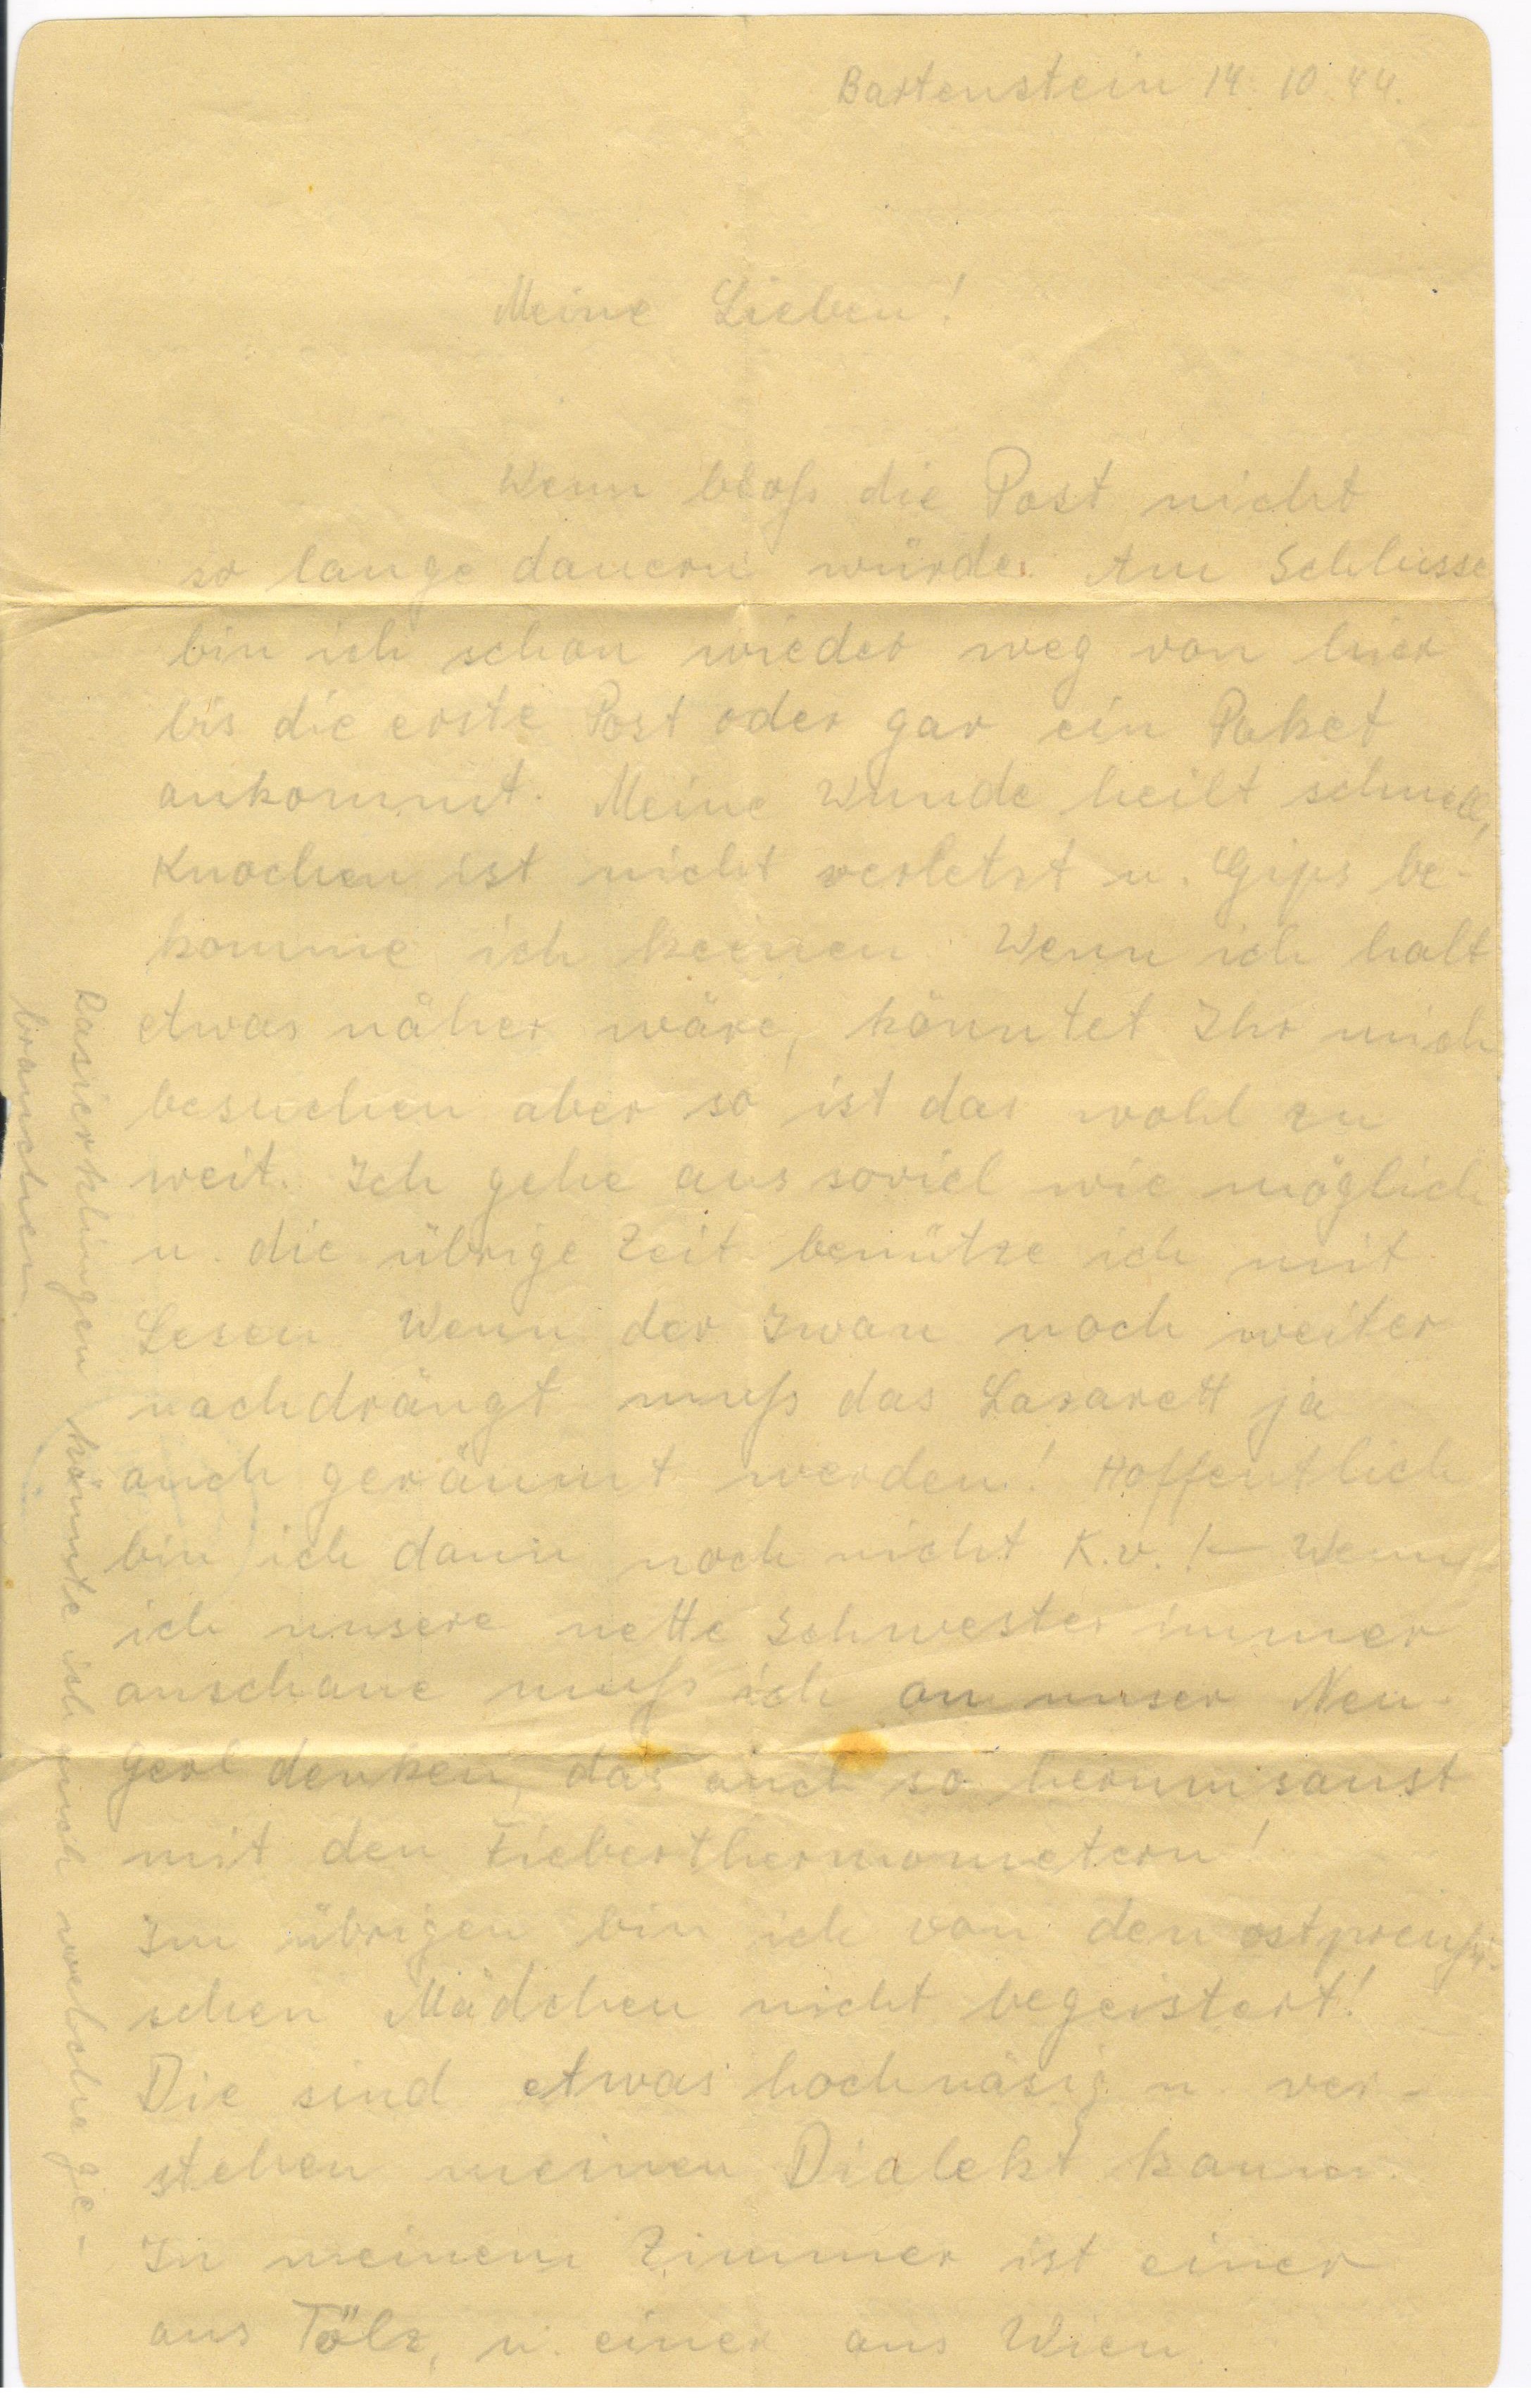 Bartenstein 14. 10. 44.
Meine Lieben!
Wenn bloß die Post nicht
so lange dauern würde. Am Schlusse
bin ich schon wieder weg von hier
bis die erste Post oder gar ein Paket
ankommt. Meine Wunde heilt schnell,
Knochen ist nicht verletzt u. Gips be-
komme ich keinen. Wenn ich halt
etwas näher wäre, könntet Ihr mich
besuchen aber so ist das wohl zu
weit. Ich gehe aus soviel wie möglich
u. die übrige Zeit benütze ich mit
Lesen. Wenn der Iwan noch weiter
nachdrängt muß das Lazarett ja
auch geräumt werden! Hoffentlich
bin ich dann noch nicht K.v.! – Wenn
ich unsere nette Schwester immer
anschaue muß ich an unser Neu-
gerl denken, das auch so herumsaust
mit den Fieberthermometern!
Im übrigen bin ich von den ostpreußi-
schen Mädchen nicht begeistert!
Die sind etwas hochnäsig u. ver-
stehen meinen Dialekt kaum.
In meinem Zimmer ist einer
aus Tölz, u. einer aus Wien.
Rasierklingen könnte ich auch welche ge-
brauchen.